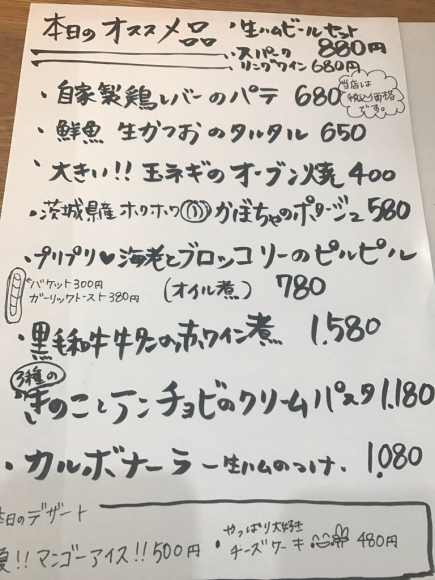 本日のオススメ品
・生ハムビールセット 880円
・スパークリングワイン 680円
・自家製鶏レバーのパテ 680
当店は
税込価格
です。
・鮮魚 生かつおのタルタル 650
・大きい!! 玉ネギのオーブン焼 400
・茨城県産ホクホクかぼちゃのポタージュ 580
・プリプリ♥海老とブロッコリーのピルピル
(オイル煮) 780
バケット300円
ガーリックトースト380円
・黒毛和牛牛タンの赤ワイン煮 1.580
3種の
きのことアンチョビのクリームパスタ 1.180
・カルボナーラ 生ハムのっけ. 1.080
本日のデザート
夏!! マンゴーアイス!! 500円
・やっぱり大好き
チーズケーキ 480円